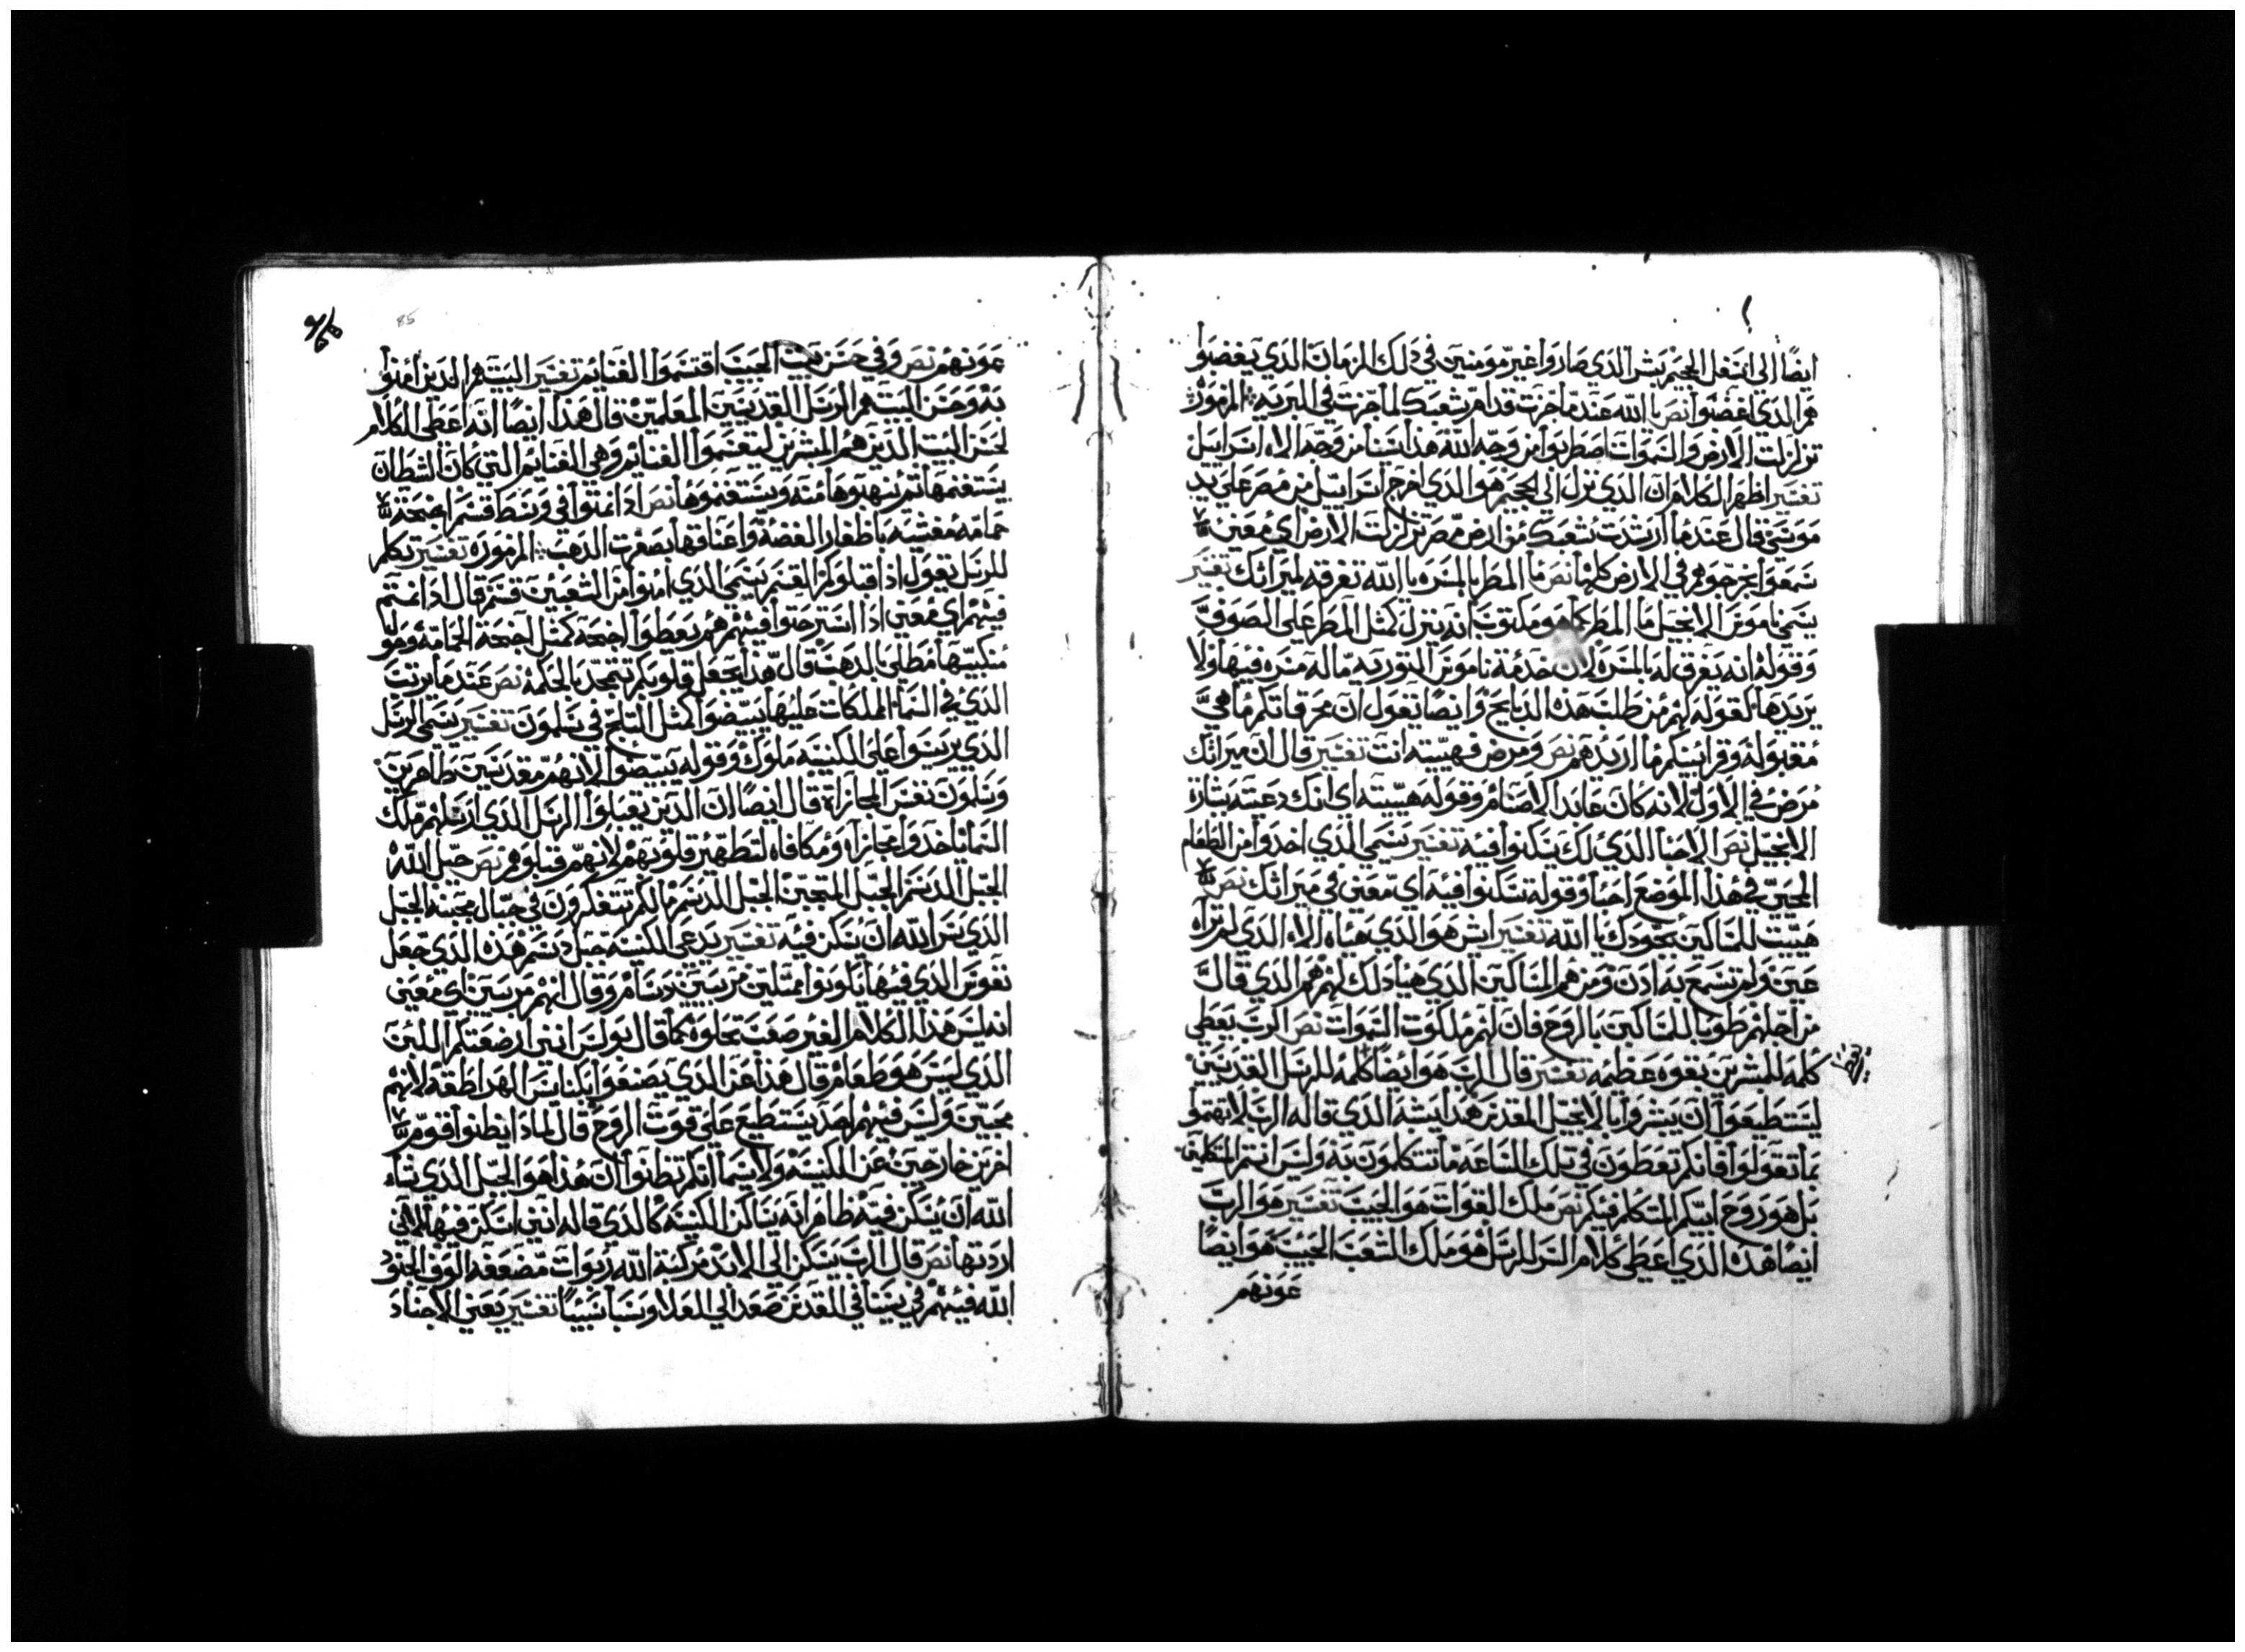 ايضًا الى اسفل الجحيم بشر الذي صاروا غير مومنين في ذلك الزمان الذي يغضبوا
هم الذي اغضبوا نص يا الله عندما خرجت قدام شعبك لما جزت في البريه المزمور
تزلزلت الارض والسموات اضطربوا من وجه الله هذا سينا من وجه الاه اسراييل
تفسير اظهر الكلام ان الذي نزل الى الجحيم هو الذي اخرج اسراييل من مصر على يد
موسى قال عندما ارشدت شعبك من ارض مصر تزلزلت الارض اي معين
سمعوا بخروجهم في الارض كلها نص ما المطر بالمسره يا الله تفرقه لميراثك تفسير
يسمي ناموس الانجيل ما المطر كما هو مكتوب انه ينزل كمثل المطر على الصوف
وقوله انه يفرق له بالمسره لان خدمة ناموس التوريه ما له مسره فيها ولا
يريدها لقوله لهم من طلب هذه الدبايح وايضا يقول ان محرقاتكم ما هي
مقبوله وقرابينكم ما اريدهم نص ومرض فهييته انت تفسير قال ان ميراثك
مرض في الاول لانه كان عابدا الاصنام وقوله هييته اي انك دعيته بشارة
الانجيل نص الاحيا الذي لك يسكنوا فيه تفسير يسمي الذي اخدوا من الطعام
المحيي في هذا الموضع احيا وقوله يسكنوا فيه اي معين في ميراثك نص
هييت للمساكين بجودك يا الله تفسير ايش هو الذي هياه الاه الذي لم تراه
عين ولم تسمع به ادن ومن هم المساكين الذي هيا ذلك لهم هم الذي قال
من اجلهم طوبا للمساكين بالروح فان لهم ملكوت السموات نص الرب يعطي
كلمه للمبشرين بقوه عظيمه تفسير قال الرب هو ايضا كلمه للرسل القديسين
ليستطيعوا ان يبشروا بالانجيل المقدس هذا يشبه الذي قاله الرب لا تهتموا
بما تقولوا فانكم تعطون في تلك الساعه ما تتكلمون به وليس انتم المتكلمين
بل هو روح ابيكم المتكلم فيكم نص ملك القوات هو الحبيب تفسير هو الرب
ايضا هذه الذي اعطى كلام السر للرسل هو ملك الشعب الحبيب هو ايضًا
عونهم
85
عونهم نص وفي حسن بيت الحبيب اقتسموا الغنايم تفسير البيت هم الدين امنوا
به وحسن البيت هم الرسل القديسين المعلمين قال هذا ايضًا انه اعطى الكلام
لحسن البيت الدين هم المبشرين ليقسموا الغنايم وهي الغنايم التي كان الشطان
يستغنمها ثم ينهبوها منه ويستغنموها نص اذا نمتوا في وسط قسم اجنحة
حمامه مغشيه باظفار الفضة واعناقها بصفرت الدهب المزموره تفسير تكلم
للرسل يقول اذا قبلوكم القسم يسمي الذي امنوا من الشعبين قسم قال اذا نمتم
فيهم اي معين اذا استرحتوا فيهم هم يعطوا اجنحه كمثل اجنحة الحمامه وهو
منكبيها مطلي بالدهب قال هذا يجعل قلوبكم تتمجد بالحكمه نص عندما يرتب
الذي في السما الملكات عليها يبيضوا كمثل الثلج في سلمون تفسير يسمي الرسل
الذي يريسوا على الكنيسه ملوك وقوله يبيضوا لانهم مقدسين طاهرين
وسلمون تفسر المجازاة قال ايضًا ان الدين يقبلوا الرسل الذي ارسلهم ملك
السما ياخدوا مجازاه ومكافاه لتطهير قلوبهم لانهم قبلوهم نص جبل الله
الجبل الدسم الجبل المتجبن الجبل الدسم ما لكم تتفكرون في جبال مجبنه الجبل
الذي سر الله ان يسكن فيه تفسير يدعي الكنيسه جبل دسم هذه الذي جعل
نفوس الذي فيها يكونوا ممتليين مربيين دسام وقال انهم مربين اي معين
انه ليس هذا الكلام الغير صعب تجلوه كما قال بولس انني ارضعتكم اللبن
الذي ليس هو طعام قال هذا عن الذي يصنعوا كنايس الهراطقه لانهم
مجبين وليس فيهم احد يستطيع على قوت الروح قال لماذا يظنوا قوم
اخرين خارجين عن الكنيسه ولاسيما انكم تظنوا ان هذا هو الجبل الذي شاء
الله ان يسكن فيه ظاهر انه يساكن الكنيسه كالذي قاله انني اسكن فيها لانني
اردتها نص قال الرب يسكن الى الابد مركبة الله ربوات مضعفه الوف الجنود
الله فيهم في سينا في القدس صعد الى العلا وسبا سبيًا تفسير يعني الاجناد